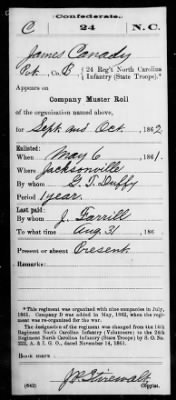 Confederate.
C 24 N.C.
James Canady
Pvt., Co. B, 24 Reg't North Carolina
Infantry (State Troops).*
Appears on
Company Muster Roll
of the organization named above,
for Sept. and Oct., 1862
Enlisted:
When May 6, 1861.
Where Jacksonville
By whom G. T. Duffy
Period 1 year.
Last paid:
By whom J. Farrill
To what time Aug 31, 186
Present or absent Present
Remarks:
*This regiment was organized with nine companies in July,
1861. Company D was added in May, 1862, when the regi-
ment was re-organized.
The designation of the regiment was changed from the 14th
Regiment North Carolina Infantry (Volunteers) to the 24th
Regiment North Carolina Infantry (State Troops) by S. O. No.
222, A. & I. G. O., dated November 14, 1861.
Book mark:
(642) Copyist.